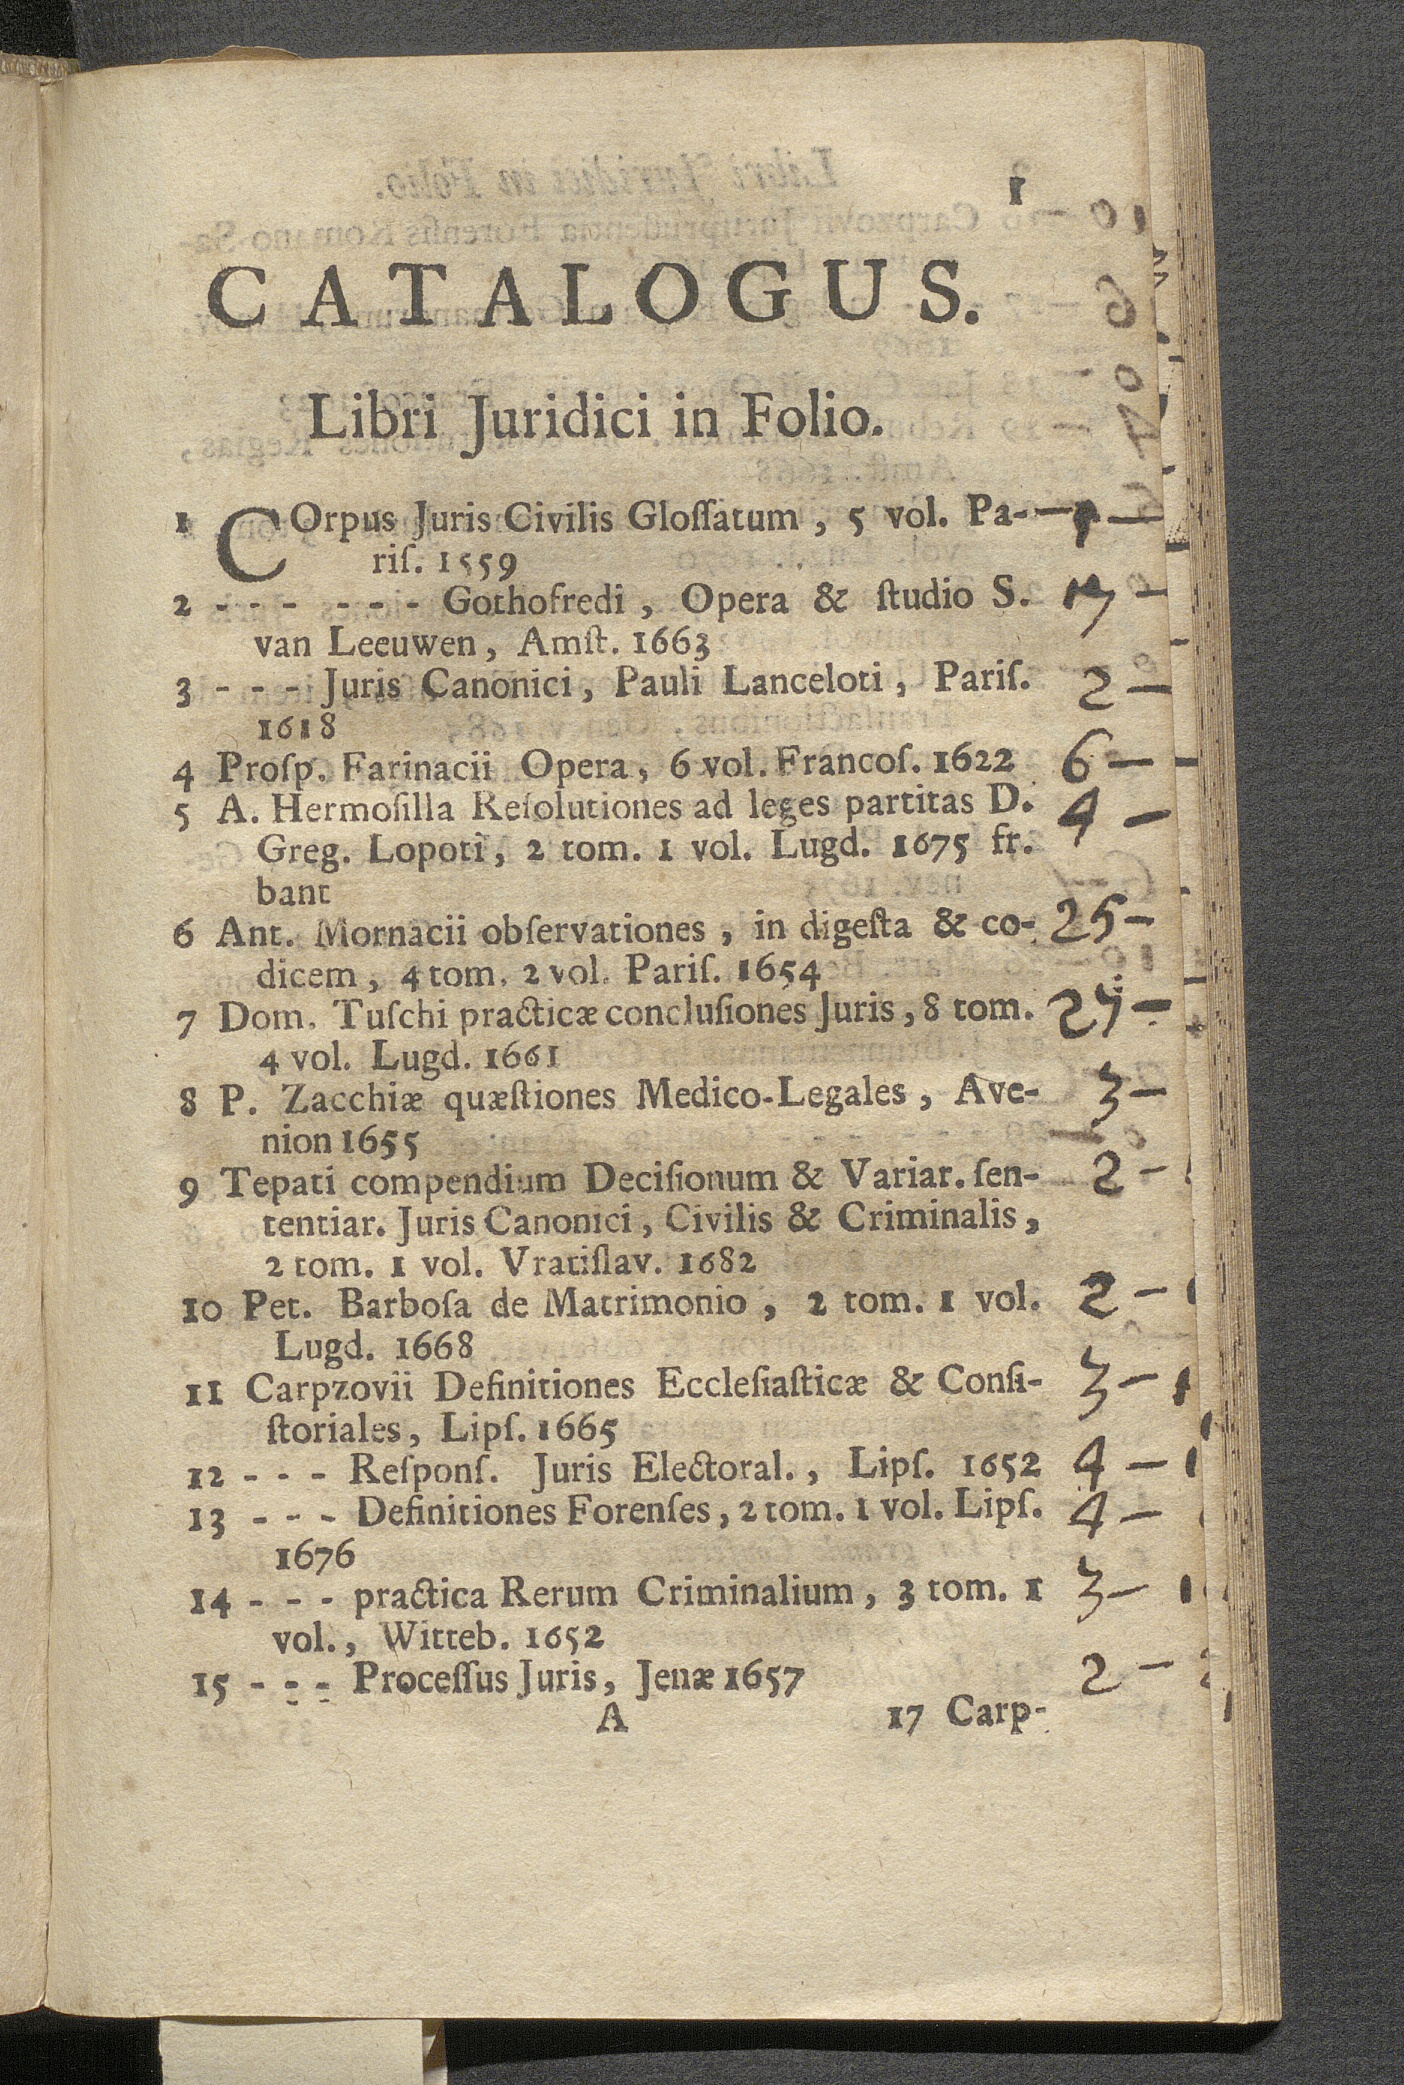 1
CATALOGUS.
Libri Juridici in Folio.
1 COrpus Juris Civilis Gloſſatum, 5 vol. Pa-
riſ. 1559
2 - - - - - - Gothofredi, Opera & ſtudio S.
van Leeuwen, Amſt. 1663
3 - - - Juris Canonici, Pauli Lanceloti, Pariſ. 2 —
1618
4 Proſp. Farinacii Opera, 6 vol. Francoſ. 1622 6 —
5 A. Hermoſilla Reſolutiones ad leges partitas D. 4 —
Greg. Lopoti, 2 tom. 1 vol. Lugd. 1675 fr.
bant
6 Ant. Mornacii obſervationes, in digeſta & co- 25 —
dicem, 4 tom. 2 vol. Pariſ. 1654
7 Dom. Tuſchi practicæ concluſiones Juris, 8 tom.
4 vol. Lugd. 1661
8 P. Zacchiæ quæſtiones Medico-Legales, Ave- 3 —
nion 1655
9 Tepati compendium Deciſionum & Variar. ſen- 2 —
tentiar. Juris Canonici, Civilis & Criminalis,
2 tom. 1 vol. Vratiſlav. 1682
10 Pet. Barboſa de Matrimonio, 2 tom. 1 vol. 2 —
Lugd. 1668
11 Carpzovii Definitiones Eccleſiaſticæ & Conſi- 3 —
ſtoriales, Lipſ. 1665
12 - - - Reſponſ. Juris Electoral., Lipſ. 1652 4 —
13 - - - Definitiones Forenſes, 2 tom. 1 vol. Lipſ. 4 —
1676
14 - - - practica Rerum Criminalium, 3 tom. 1 3 —
vol., Witteb. 1652
15 - - - Proceſſus Juris, Jenæ 1657 2 —
A 17 Carp-